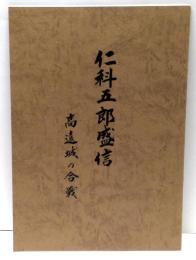 仁科五郎盛信
高遠城の合戦